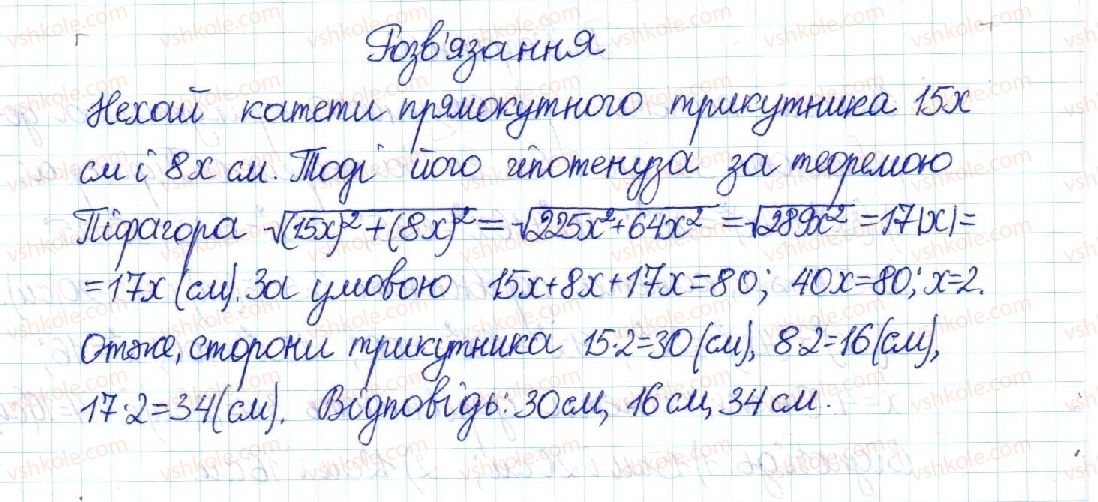 Розв'язання
Нехай катети прямокутного трикутника 15x
см і 8x см. Тоді його гіпотенуза за теоремою
Піфагора √(15x)²+(8x)² = √225x²+64x² = √289x² = 17|x| =
= 17x (см). За умовою 15x+8x+17x=80; 40x=80; x=2.
Отже, сторони трикутника 15·2=30 (см), 8·2=16 (см),
17·2=34 (см). Відповідь: 30 см, 16 см, 34 см.